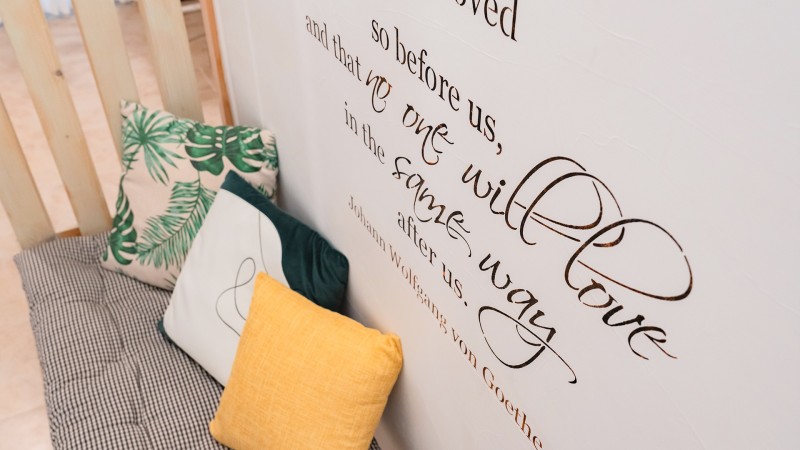 so before us,
and that no one will love
in the same way
after us.
Johann Wolfgang von Goethe